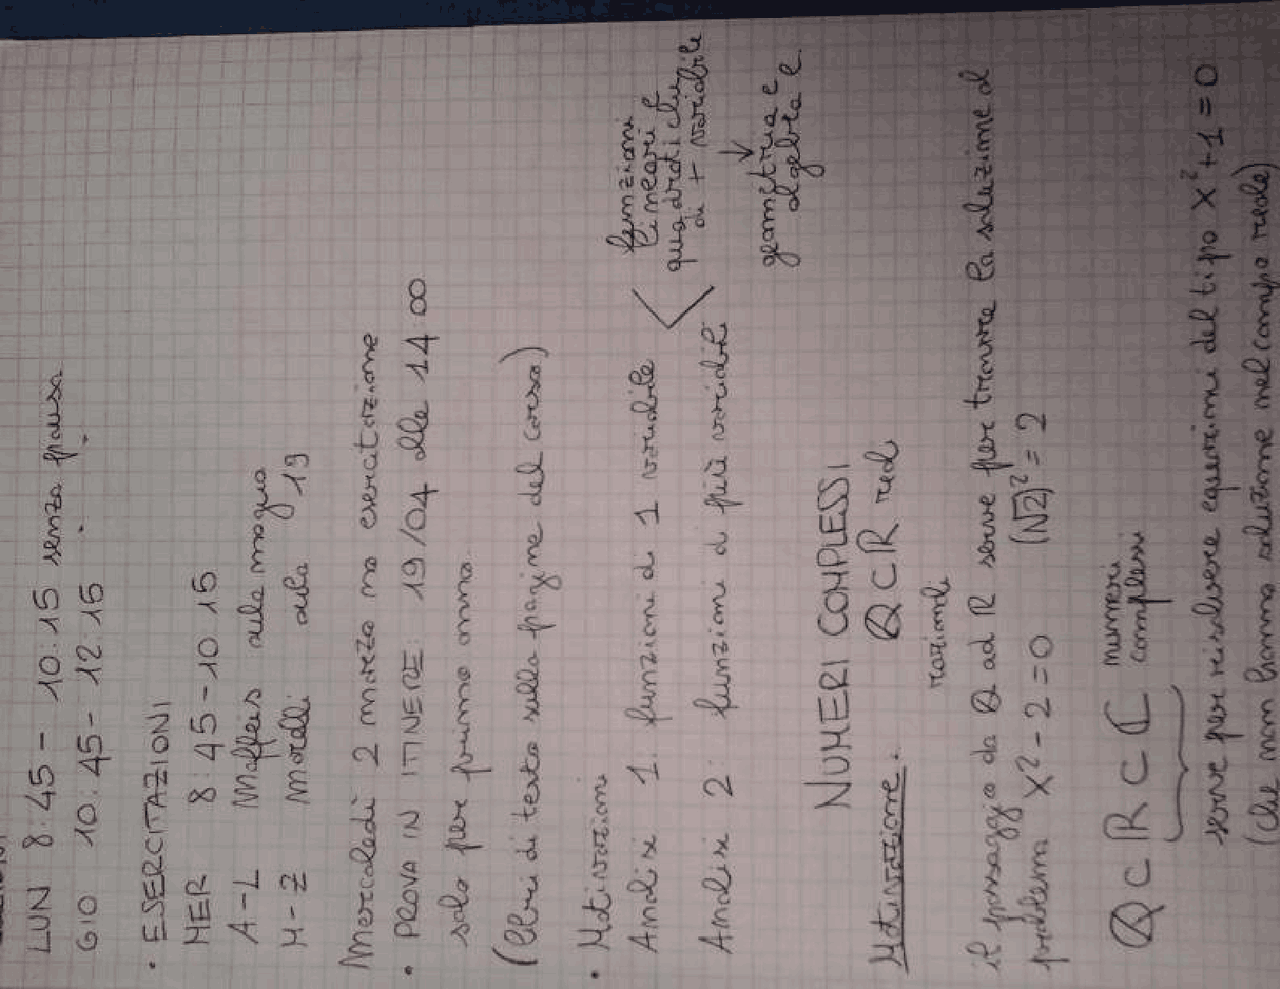 LUN 8:45 - 10:15 senza pausa
GIO 10:45 - 12:15 " "
• ESERCITAZIONI
MER 8:45 - 10 15
A-L Maffeis aula magna
M-Z Morelli aula 19
Mercoledì 2 marzo no esercitazione
• PROVA IN ITINERE: 19/04 alle 14 00
solo per primo anno.
(libri di testo sulla pagina del corso)
• Motivazioni
Analisi 1: funzioni di 1 variabile
Analisi 2: funzioni di più variabili
funzioni
lineari e
quadratiche
di + variabile
↓
geometria e
algebra e.
NUMERI COMPLESSI
Motivazione: Q ⊂ R reali
razionali
il passaggio da Q ad R serve per trovare la soluzione al
problema x² - 2 = 0 (√2)² = 2
Q ⊂ R ⊂ C numeri
complessi
serve per risolvere equazioni del tipo x² + 1 = 0
(che non hanno soluzione nel campo reale)